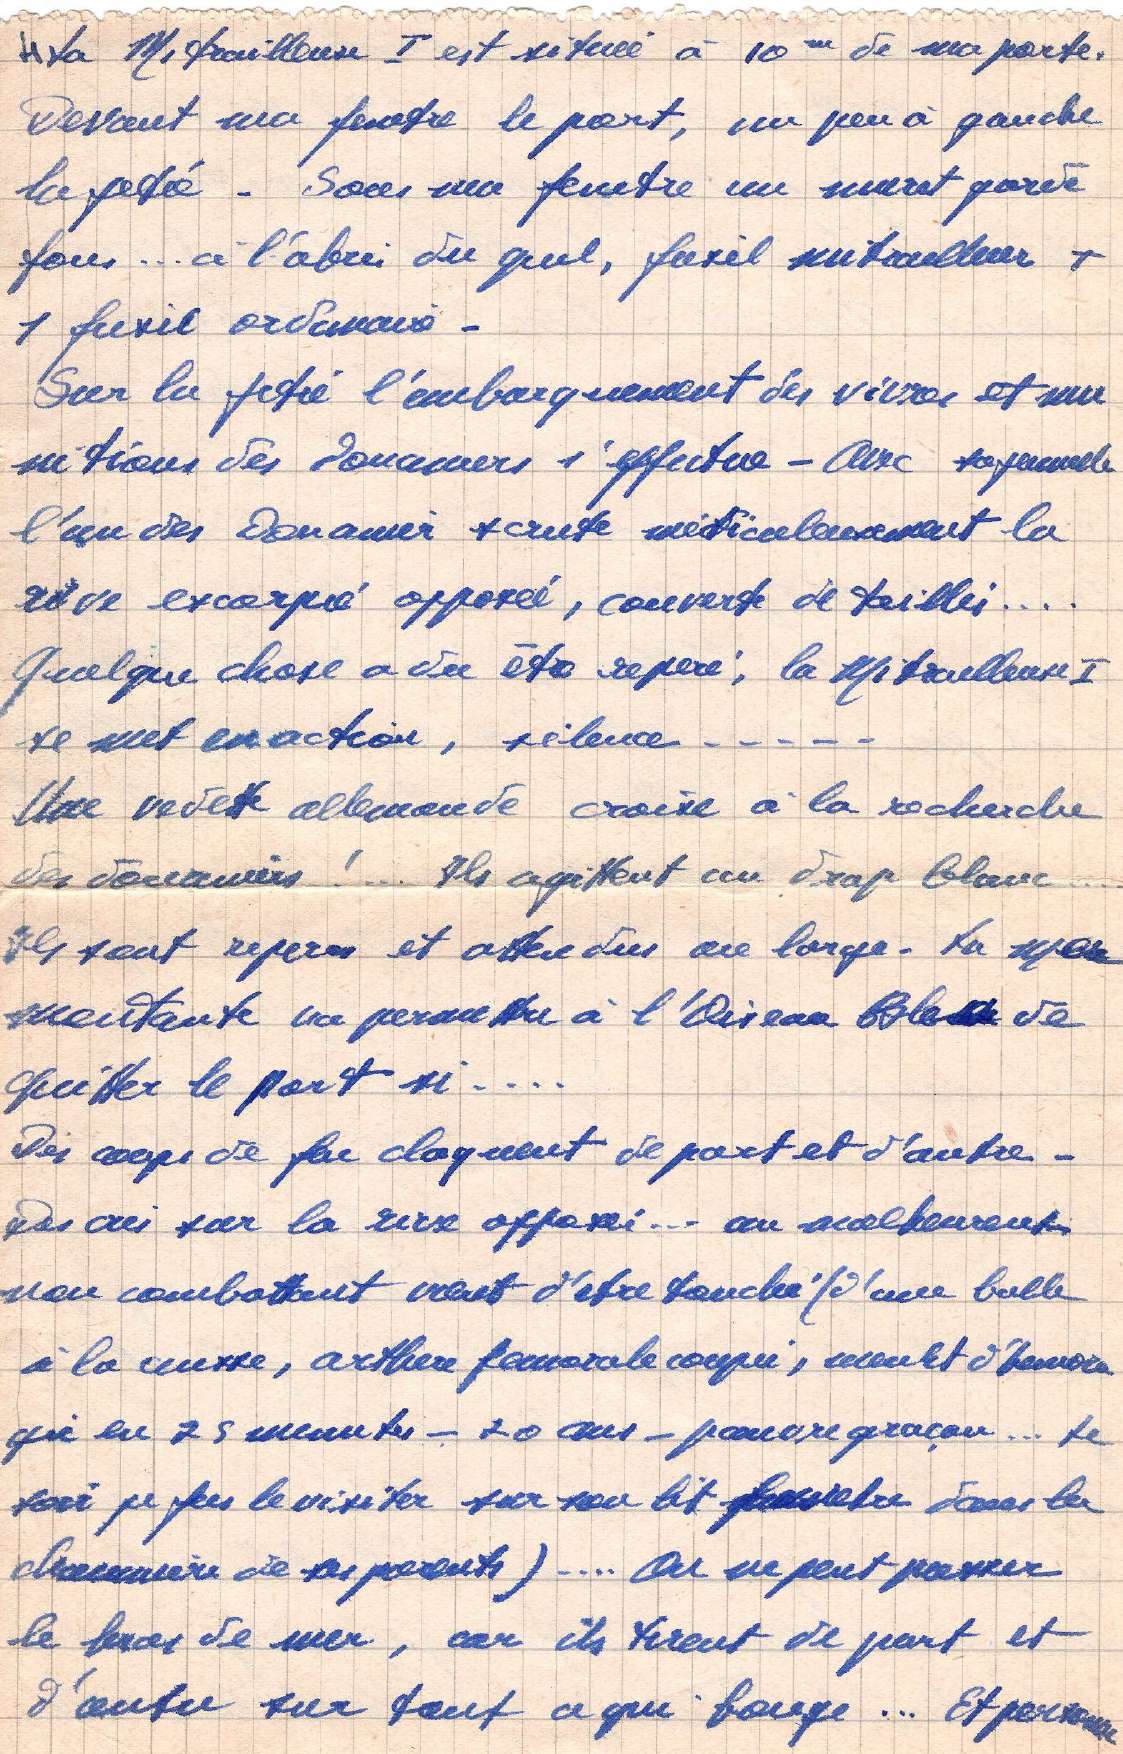 4) La Mitrailleuse I est située à 10 m de ma porte.
Devant ma fenêtre le port, un peu à gauche
la jetée - Sous ma fenêtre un muret garde
fous ... à l'abri du quel, fusil mitrailleur +
1 fusil ordinaire -
Sur la jetée l'embarquement des vivres et mu
nitions des Douaniers s'effectue - Avec sa jumelle
l'un des Douanier scrute méticuleusement la
rive escarpée opposée, couverte de taillis ....
Quelque chose a du être reperé, la Mitrailleuse I
se met en action, silence - - - - -
Une vedette allemande croise à la recherche
des douaniers ! ... Ils agittent un drap blanc ....
Ils sont reperes et attendus au large. La mer
montante va permettre à l'Oiseau Bleu de
quitter le port si - ....
Des coups de feu claquent de part et d'autre -
Des cris sur la rive opposée ... un malheureux
non combattant vient d'être touché (d'une balle
à la cuisse, arthere femorale coupée, meurt d'hemora
gie en 25 minutes - 20 ans - pauvre graçon ... Le
soir je fus le visiter sur son lit dans la
chaumière de ses parents) .... On ne peut passer
le bras de mer, car ils tirent de part et
d'autre sur tout a qui bouge ... Et personne